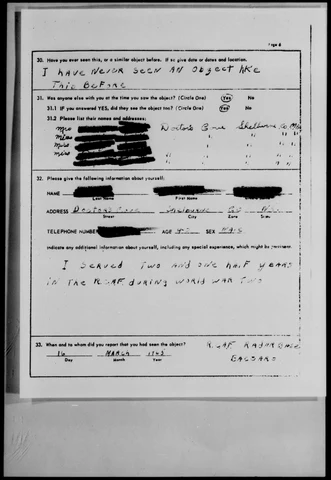 Page 8
30. Have you ever seen this, or a similar object before. If so give date or dates and location.
I HAVE NEVER SEEN AN OBJECT LIKE
THIS BEFORE
31. Was anyone else with you at the time you saw the object? (Circle One) Yes No
31.1 If you answered YES, did they see the object too? (Circle One) Yes No
31.2 Please list their names and addresses:
Mrs Doctors Cove Shelburne Co
Miss " " " "
Mrs " " " "
Miss " " " "
32. Please give the following information about yourself:
NAME
Last Name First Name
ADDRESS Doctors Cove Shelburne Co N.S.
Street City Zone State
TELEPHONE NUMBER AGE SEX MALE
Indicate any additional information about yourself, including any special experience, which might be pertinent.
I SERVED TWO AND ONE HALF YEARS
IN THE R.C.A.F. DURING WORLD WAR TWO
33. When and to whom did you report that you had seen the object?
16 MARCH
Day Month Year
RADAR BASE
BACCARO